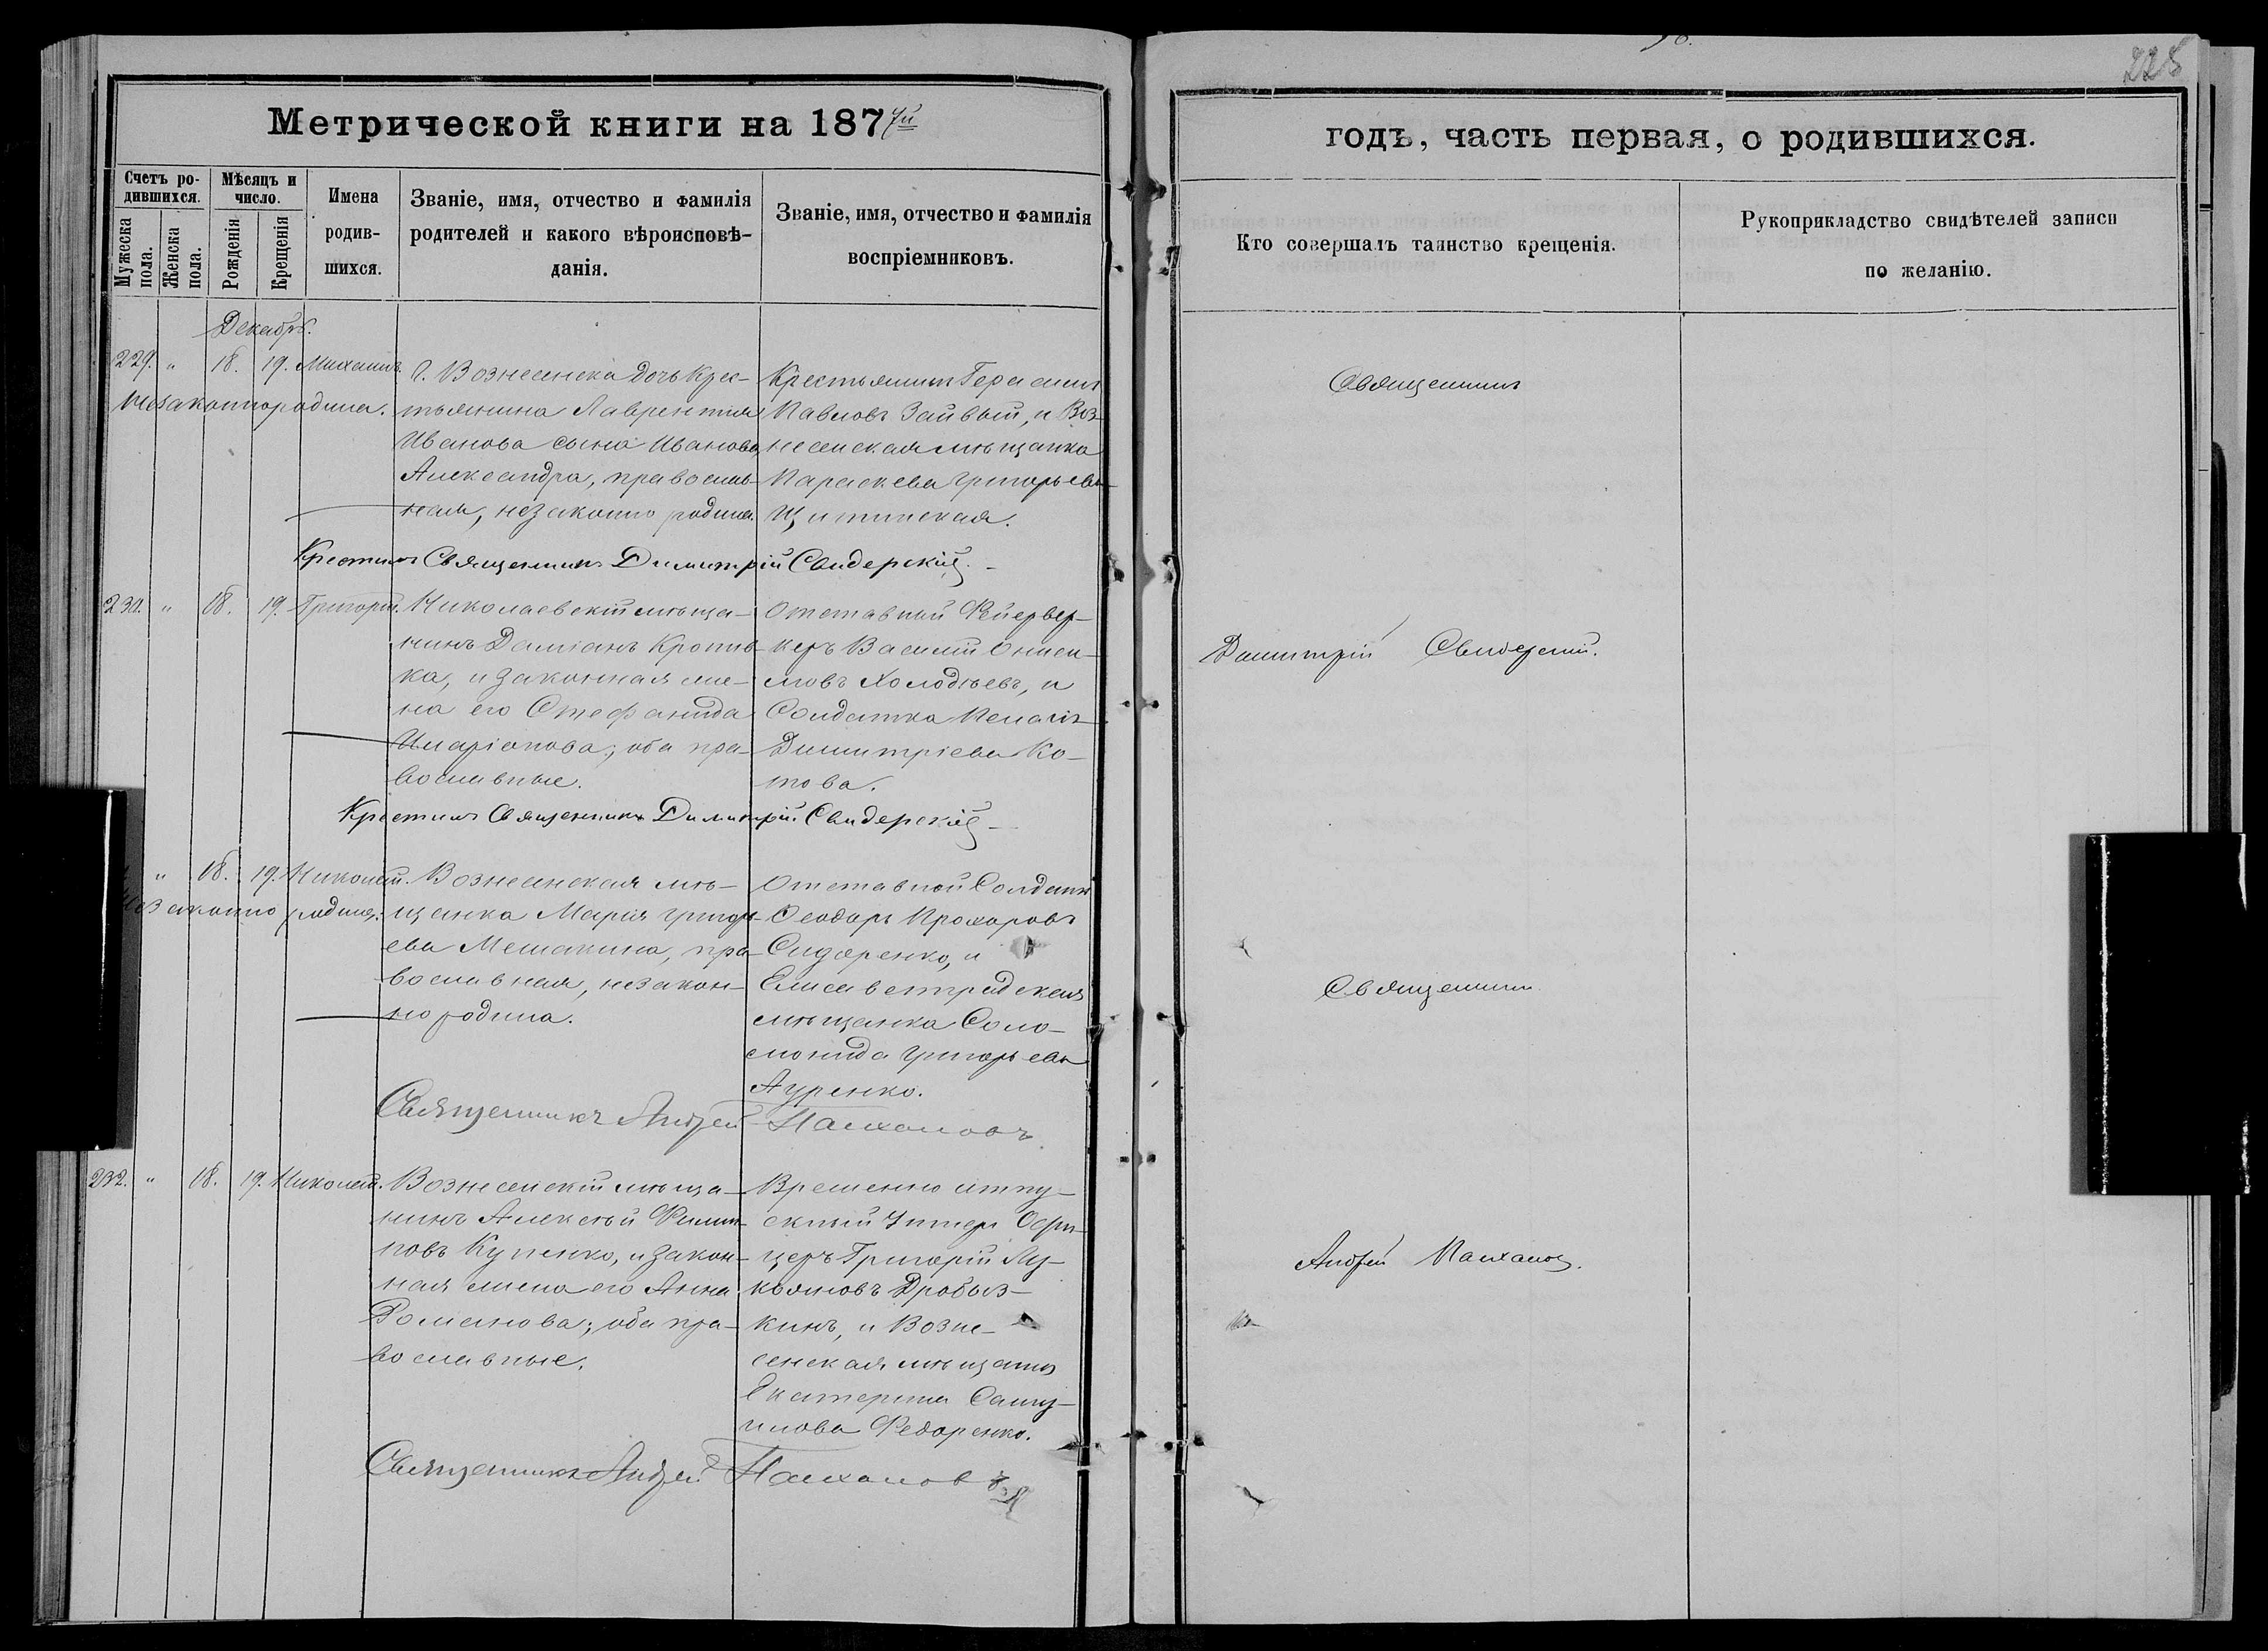 225
Метрической книги на 1877й
годъ, часть первая, о родившихся.
Счетъ родившихся.
Мужеска пола.
Женска пола.
Мѣсяцъ и число.
Рожденія
Крещенія
Имена родившихся.
Званіе, имя, отчество и фамилія
родителей и какого вѣроисповѣ-
данія.
Званіе, имя, отчество и фамилія
воспріемниковъ.
Кто совершалъ таинство крещенія.
Рукоприкладство свидѣтелей записи
по желанію.
Декабрь.
229. " 18. 19. Михаилъ.
незаконнородила.
г. Вознесенска дочь Крес-
тьянина Лаврентія
Иванова сына Иванова
Александра, православ-
ная, незаконно родила.
Крестьянинъ Герасимъ
Павловъ Зайвый, и Воз-
несенская мѣщанка
Параскева Григорьева
Крестилъ Священникъ Димитрій Свидерскій.
230. " 18. 19. Григорій.
Николаевскій мѣща-
нинъ Даміанъ Кропив-
ка, и законная же-
на его Стефанида
Иларіонова; оба пра-
вославные.
Отставной Фейервер-
керъ Василій Аниси-
мовъ Холодѣевъ, и
Солдатка Пелагія
Димитріева Ко-
това.
Крестилъ Священникъ Димитрій Свидерскій
" 18. 19. Николай.
незаконно родила.
Вознесенская мѣ-
щанка Марія Григорь-
ева Мешакина, пра-
вославная, незакон-
но родила.
Отставной Солдатъ
Ѳеодоръ Прохоровъ
Сидоренко, и
Елисаветградская
мѣщанка Соло-
монида Григорьева
Ауренко.
Священникъ Андрей Палхаловъ
232. " 18. 19. Николай.
Вознесенскій мѣща-
нинъ Алексѣй Филип-
повъ Купенко, и закон-
ная жена его Анна
Романова; оба пра-
вославные.
Временно отпу-
скный Унтеръ Офи-
церъ Григорій Лу-
кояновъ Дробыз-
кинъ, и Возне-
сенская мѣщанка
Екатерина Саму-
илова Федоренко.
Священникъ Андрей Палхаловъ
Священникъ
Димитрій Свидерскій.
Священникъ
Андрей Палхаловъ.